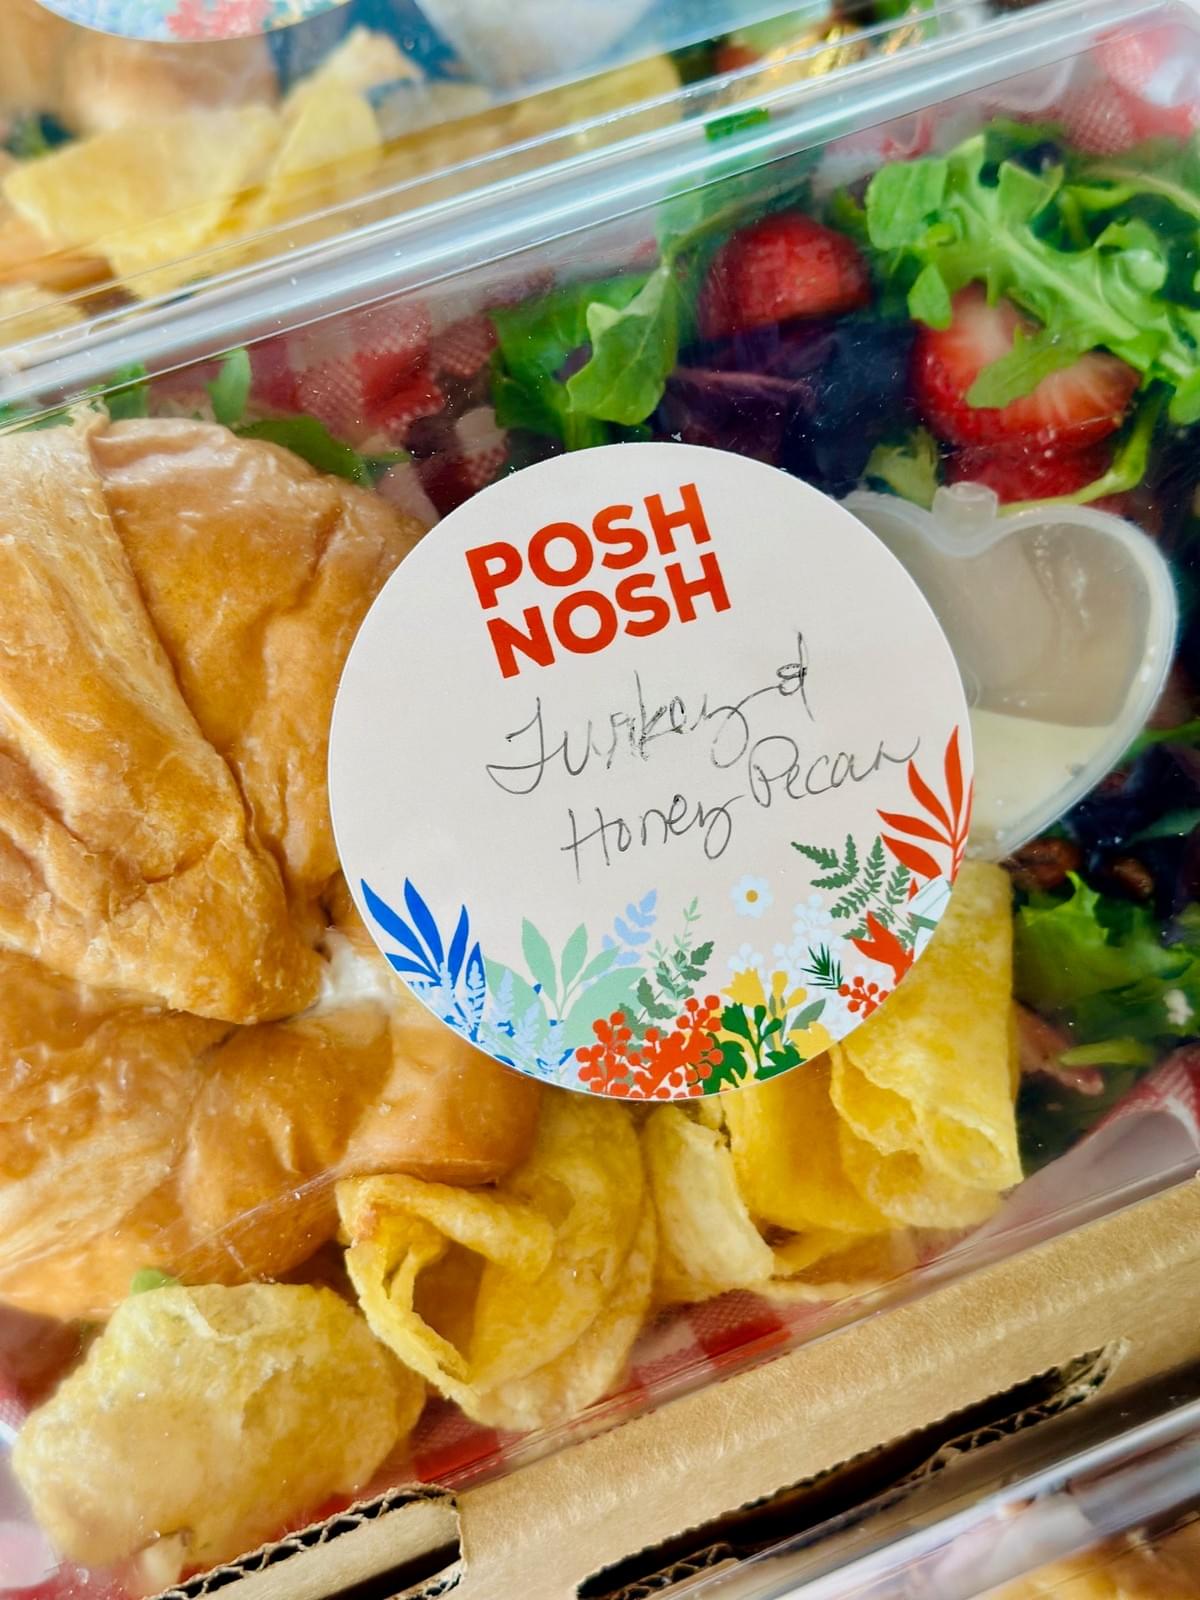 POSH
NOSH
Turkey &
Honey Pecan